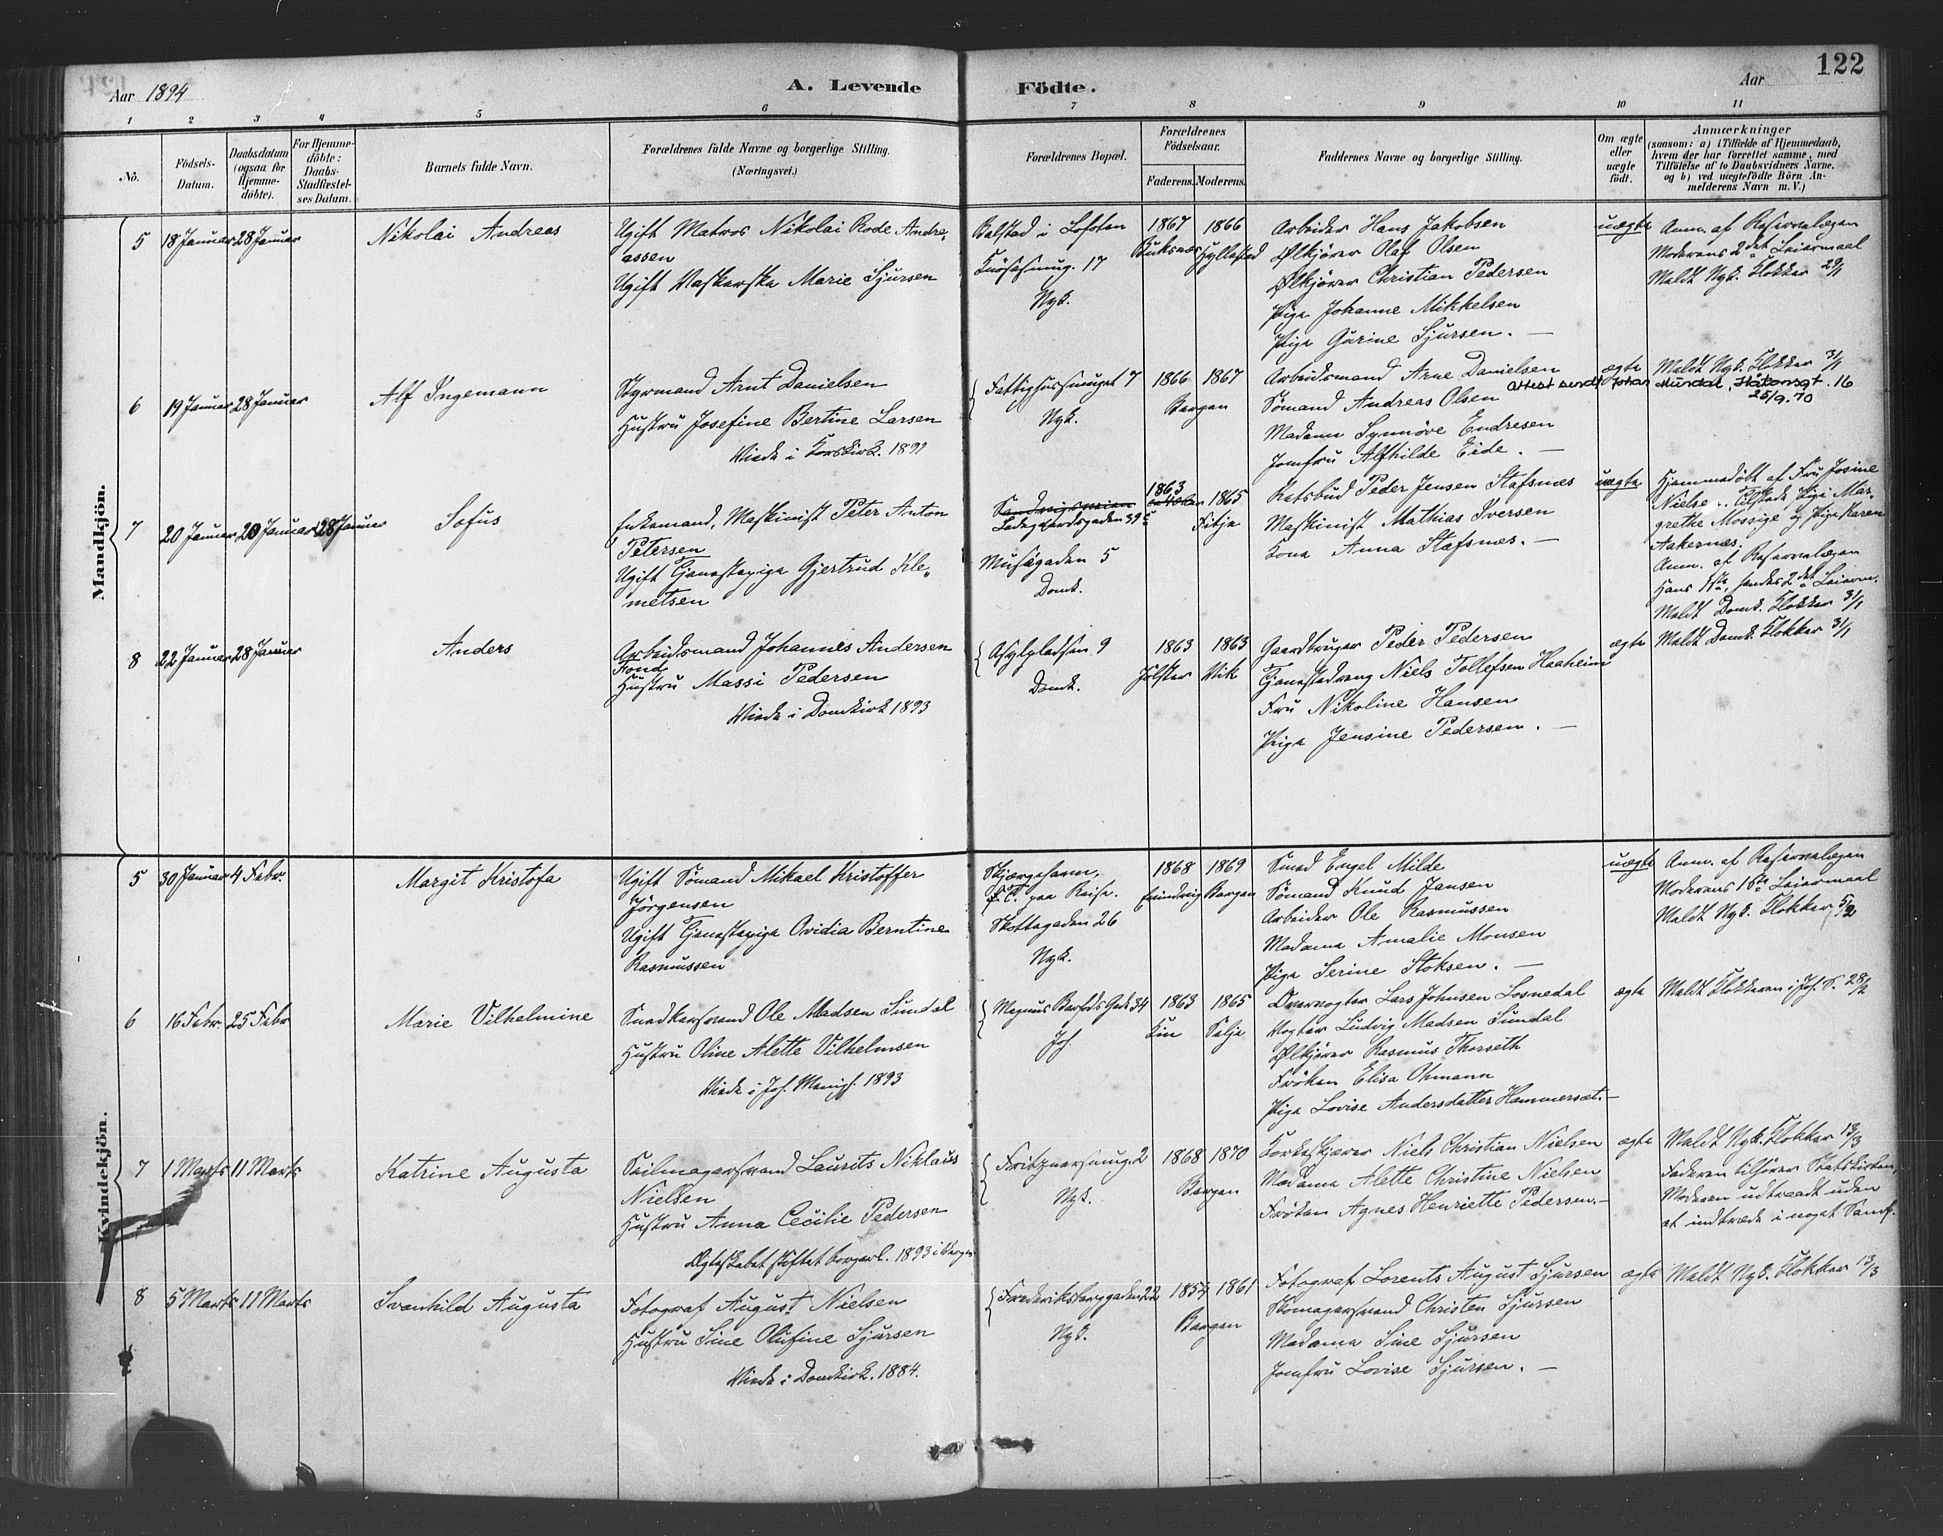 122
Aar 1894
A. Levende
Födte.
Aar
1 2 3 4 5 6 7 8 9 10 11
No.
Födsels-Datum.
Daabsdatum (ogsaa for Hjemme-döbte).
For Hjemme-döbte: Daabs-Stadfæstel-ses Datum.
Barnets fulde Navn.
Forældrenes fulde Navne og borgerlige Stilling. (Næringsvei.)
Forældrenes Bopæl.
Forældrenes Födselsaar.
Faderens. Moderens.
Faddernes Navne og borgerlige Stilling.
Om ægte eller uægte födt.
Anmærkninger
(saasom: a) i Tilfælde af Hjemmedaab, hvem der har forrettet samme, med Tilföielse af to Daabsvidners Navne. og b) ved uægtefödte Börn An-melderens Navn m. V.)
Mandkjön.
5 18 Januar 28 Januar
Nikolai Andreas
Ugift Matros Nikolai Rode Andre-
assen
Ugift Vaskerske Marie Sjursen
Balstad i Lofoten
17
Nyk.
1867 1866
Buksnæs Hyllestad
Arbeider Hans Jakobsen
Ølkjører Olaf Olsen
Ølkjører Christian Pedersen
Pige Johanne Mikkelsen
Pige Gurine Sjursen. —
uægte
Anm. af Reservelægen
Moderens 2det Leiermaal
Meldt Nyk. Klokker 29/1
6 19 Januar 28 Januar
Alf Ingemann
Styrmand Arnt Danielsen
Hustru Josefine Bertine Larsen
Viede i Korskirk. 1891
Fattighussmuget 7
Nyk.
1866 1867
Bergen
Arbeidsmand Arne Danielsen
Sömand Andreas Olsen
Madame Synnöve Endresen
Jomfru Alfhilde Eide. —
ægte
Meldt Nyk. Klokker 31/1
Attest sendt Johan 16
25/9. 70
7 20 Januar 20 Januar 28 Januar
Sofus
Enkemand, Maskinist Peter Anton
Petersen
Ugift Tjenestepige Gjertrud Kle-
metsen
Sandvigsveien
Ladegaardsgaden 39
Muségaden 5
Domk.
1863 1865
Fitje
Retsbud Peder Jensen Stafsnes
Maskinist Mathias Iversen
Kone Anna Stafsnes. —
uægte
Hjemmedöbt af Fru Josine
Nielse Pige Mar-
grethe Mossige og Pige Karen
Aakernes.
Anm. af Reservelægen
Hans 1ste, hendes 2det Leierm.
Meldt Domk. Klokker 31/1
8 22 Januar 28 Januar
Anders
Arbeidsmand Johannes Andersen
Fond
Hustru Massi Pedersen
Viede i Domkirk 1893
Asylpladsen 9
Domk.
1863 1863
Jölster Vik
Gaardbruger Peder Pedersen
Tjenestedreng Niels Tollefsen Haaheim
Fru Nikoline Hansen
Pige Jensine Pedersen. —
ægte
Meldt Domk. Klokker 31/1
Kvindekjön.
5 30 Januar 4 Febr.
Margit Kristofa
Ugift Sömand Mikael Kristoffer
Jörgensen
Ugift Tjenestepige Ovidia Berntine
Rasmussen
Skjærgehavn,
paa Reise.
Skottegaden 26
Nyk.
1868 1869
Evindvig Bergen
Smed Engel Milde
Sömand Knud Jansen
Arbeider Ole Rasmussen
Madame Amalie Monsen
Pige Serine Stoksen. —
uægte
Anm. af Reservelægen
Moderens 1ste Leiermaal
Meldt Nyk. Klokker 5/2
6 16 Febr. 25 Febr
Marie Vilhelmine
Snedkersvend Ole Madsen Sundal
Hustru Oline Alette Vilhelmsen
Viede i Joh. Menigh. 1893
Magnus Barfods Gade 34
Joh
1863 1865
Kin Selje
Overvogter Lars Johnsen Losnedal
Vogter Ludvig Madsen Sundal
Ølkjører Rasmus Thorseth
Fröken Elisa Ohmann
Pige Lovise Andersdatter Hammerset. —
ægte
Meldt Klokkeren i Joh. S. 28/2
7 1 Marts 11 Marts
Katrine Augusta
Seilmagersvend Laurits Niklaus
Nielsen
Hustru Anna Cecilie Pedersen
Ægteskabet stiftet borgerl. 1893 i Bergen
Fritznersmug. 2
Nyk.
1868 1870
Bergen
Korkeskjærer Niels Christian Nielsen
Madame Alette Christine Nielsen
Fröken Agnes Henriette Pedersen. —
ægte
Meldt Nyk. Klokker 13/3
Faderen tilhører Statskirken,
Moderen udtraadt uden
at indtræde i noget Samf.
8 5 Marts 11 Marts
Svanhild Augusta
Fotograf August Nielsen
Hustru Sine Olufine Sjursen
Viede i Domkirk. 1884.
Frederiksberggaden 22
Nyk.
1854 1861
Bergen
Fotograf Lorents August Sjursen
Skomagersvend Christen Sjursen
Madame Sine Sjursen
Jomfru Lovise Sjursen. —
ægte
Meldt Nyk. Klokker 13/3